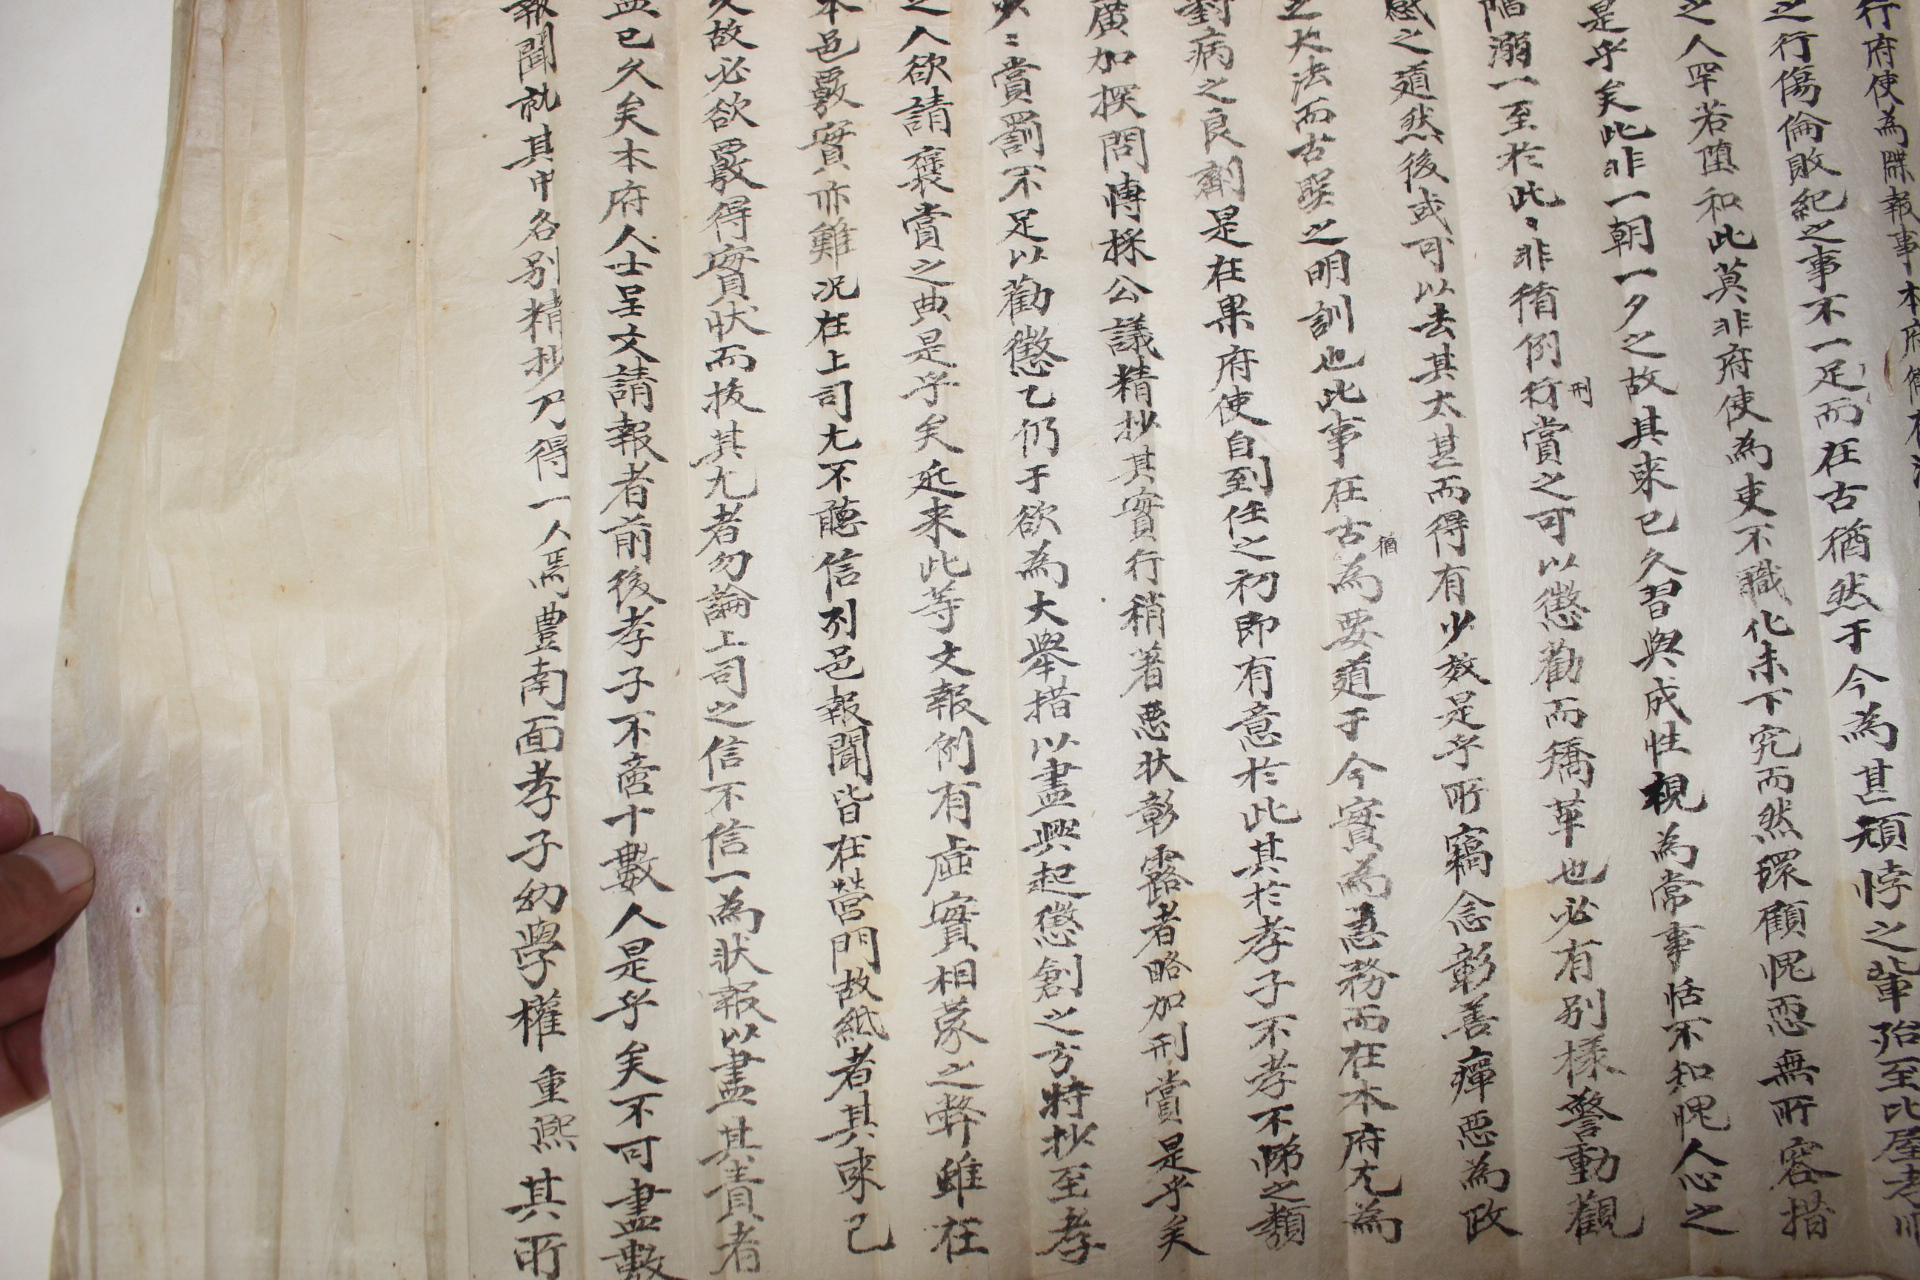 行府使為牒報事本府
之行傷倫敗紀之事不一足而在古猶然于今為甚頑悖之輩殆至比屋孝順
之人罕若堕和此莫非府使為吏不職化未下究而然環顧愧恧無所容措
是乎矣此非一朝一夕之故其來已久習與成性視為常事恬不知愧人心之
陷溺一至於此〻非循例行刑賞之可以懲勸而矯革也必有別樣警動觀
感之道然後或可以去其太甚而得有少效是乎所竊念彰善癉惡為政
之大法而古聖之明訓也此事在古猶為要道于今實為急務而在本府尤為
對病之良劑是在果府使自到任之初即有意於此其於孝子不孝不悌之類
廣加探問博採公議精抄其實行稍著惡狀彰露者略加刑賞是乎矣
少〻賞罰不足以勸懲乙仍于欲為大舉措以盡興起懲創之方特抄至孝
之人欲請褒賞之典是乎矣近來此等文報例有虛實相蒙之弊雖在
本邑覈實亦難況在上司尤不聽信列邑報聞皆在營門故紙者其來已
久故必欲覈得實狀而拔其尤者勿論上司之信不信一為狀報以盡其責者
盖已久矣本府人士呈文請報者前後孝子不啻十數人是乎矣不可盡數
報聞就其中各別精抄乃得一人焉豊南面孝子幼學權重熙其所